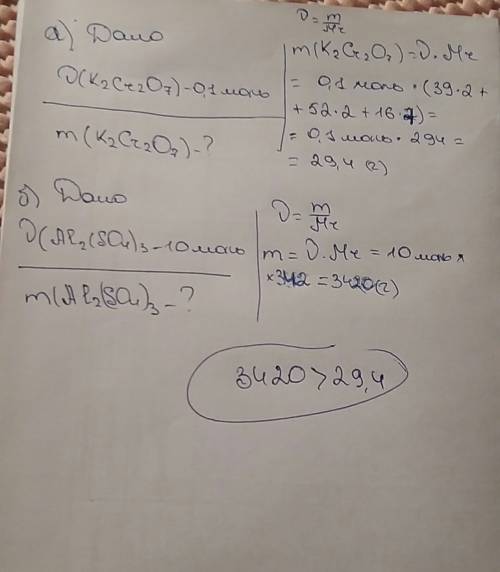 а) Дано
D(K₂Cr₂O₇)-0,1 моль
m(K₂Cr₂O₇)-?
D = m/Mr
m(K₂Cr₂O₇) = D·Mr
= 0,1 моль · (39·2+
+52·2+16·7)=
= 0,1 моль · 294 =
= 29,4 (г)
б) Дано
D(Al₂(SO₄)₃-10 моль
m(Al₂(SO₄)₃-?
D = m/Mr
m = D·Mr = 10 моль ×
×342 = 3420(г)
3420>29,4